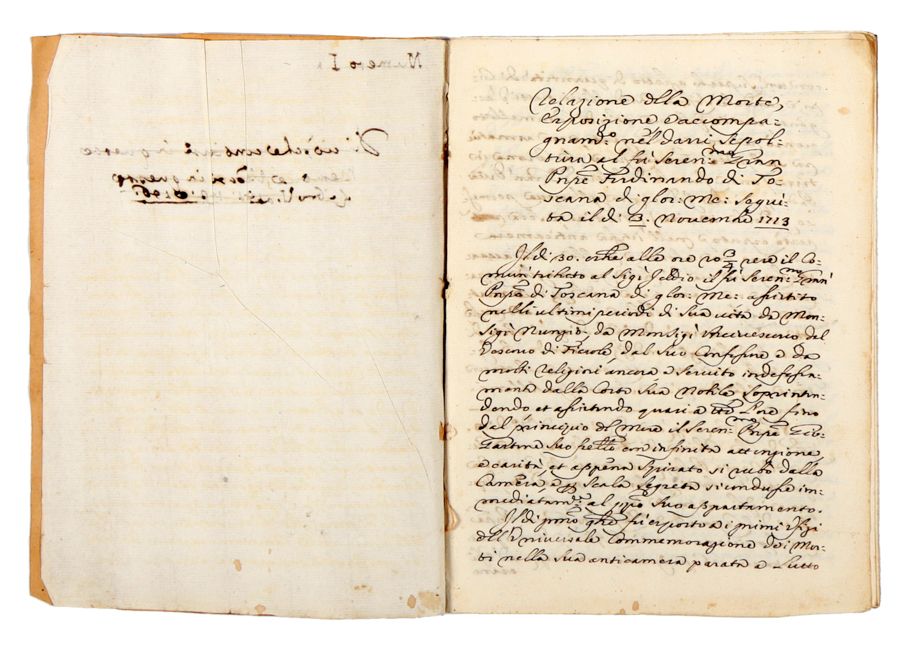 Numero I
Relazione della Morte,
Esposizione e accompa=
gnam.to nel darsi sepol=
tura al fù Seren.mo Gran
Prñpe Ferdinando di To=
scana di glor: Me: Segui=
ta il dì 3. Novembre 1713
Il dì 30. 8bre alle ore 20 3/4 rese il Co=
mun tributo al Sig.r Iddio il fù Seren.mo Gran
Prñpe di Toscana di glor: Me: assistito
nelli ultimi periodi di Sua vita da Mon=
Sig.r Nunzio, da MonSig.r Arcivescovo, dal
Vescovo di Fiesole, dal Suo Confessore e da
molti Religiosi ancora e servito indefessa=
mente dalla Corte Sua Nobile Soprinten=
dendo et assistendo quasi a tutte l'ore fino
dal principio del Male il Seren.mo Prñpe Gio:
Gastone Suo fratello con infinita attenzione
e carità, et appena Spirato si rubò dalla
Camera e p Scala Segreta si condusse im=
mediatam.te al pprio Suo appartamento.
Il dì primo 9bre fù esposto ai primi Ufizi
dell'Universale Commemorazione dei Mor=
ti nella Sua anticamera parata a Lutto